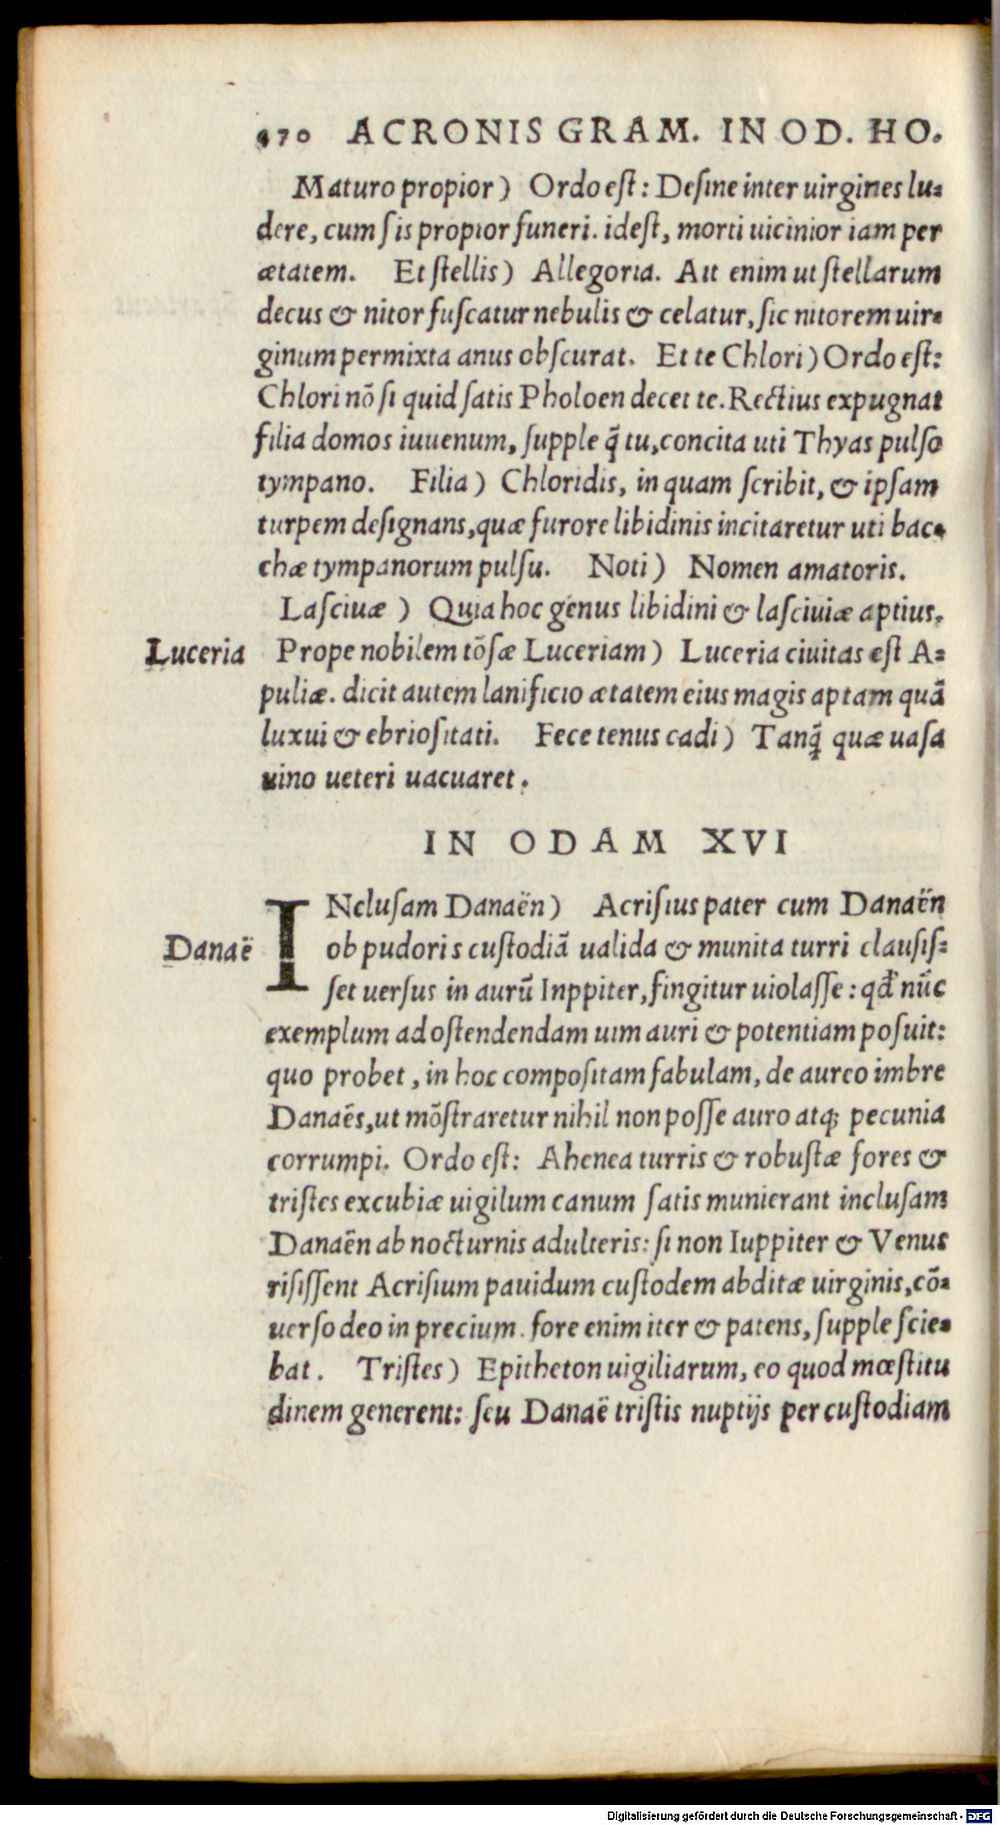 470 ACRONIS GRAM. IN OD. HO.
Maturo propior) Ordo eſt: Deſine inter uirgines lu-
dere, cum ſis propior funeri. ideſt, morti uicinior iam per
ætatem. Et ſtellis) Allegoria. Ait enim ut ſtellarum
decus & nitor fuſcatur nebulis & celatur, ſic nitorem uir-
ginum permixta anus obſcurat. Et te Chlori) Ordo eſt:
Chlori nō ſi quid ſatis Pholoen decet te. Rectius expugnat
filia domos iuuenum, ſupple q̃ tu, concita uti Thyas pulſo
tympano. Filia) Chloridis, in quam ſcribit, & ipſam
turpem deſignans, quæ furore libidinis incitaretur uti bac-
chæ tympanorum pulſu. Noti) Nomen amatoris.
Laſciuæ) Quia hoc genus libidini & laſciuiæ aptius.
Luceria Prope nobilem tōſæ Luceriam) Luceria ciuitas eſt A-
puliæ. dicit autem lanificio ætatem eius magis aptam quā
luxui & ebrioſitati. Fece tenus cadi) Tanq̃ quæ uaſa
uino ueteri uacuaret.
IN ODAM XVI
INcluſam Danaën) Acriſius pater cum Danaën
Danaë ob pudoris cuſtodiā ualida & munita turri clauſiſ-
ſet uerſus in aurū Inppiter, fingitur uiolaſſe: qđ nūc
exemplum ad oſtendendam uim auri & potentiam poſuit:
quo probet, in hoc compoſitam fabulam, de aureo imbre
Danaës, ut mōſtraretur nihil non poſſe auro atq; pecunia
corrumpi. Ordo eſt: Ahenea turris & robuſtæ fores &
triſtes excubiæ uigilum canum ſatis munierant incluſam
Danaën ab nocturnis adulteris: ſi non Iuppiter & Venus
riſiſſent Acriſium pauidum cuſtodem abditæ uirginis, cō-
uerſo deo in precium. fore enim iter & patens, ſupple ſcie-
bat. Triſtes) Epitheton uigiliarum, eo quod mœſtitu
dinem generent: ſeu Danaë triſtis nuptijs per cuſtodiam
Digitalisierung gefördert durch die Deutsche Forschungsgemeinschaft - DFG